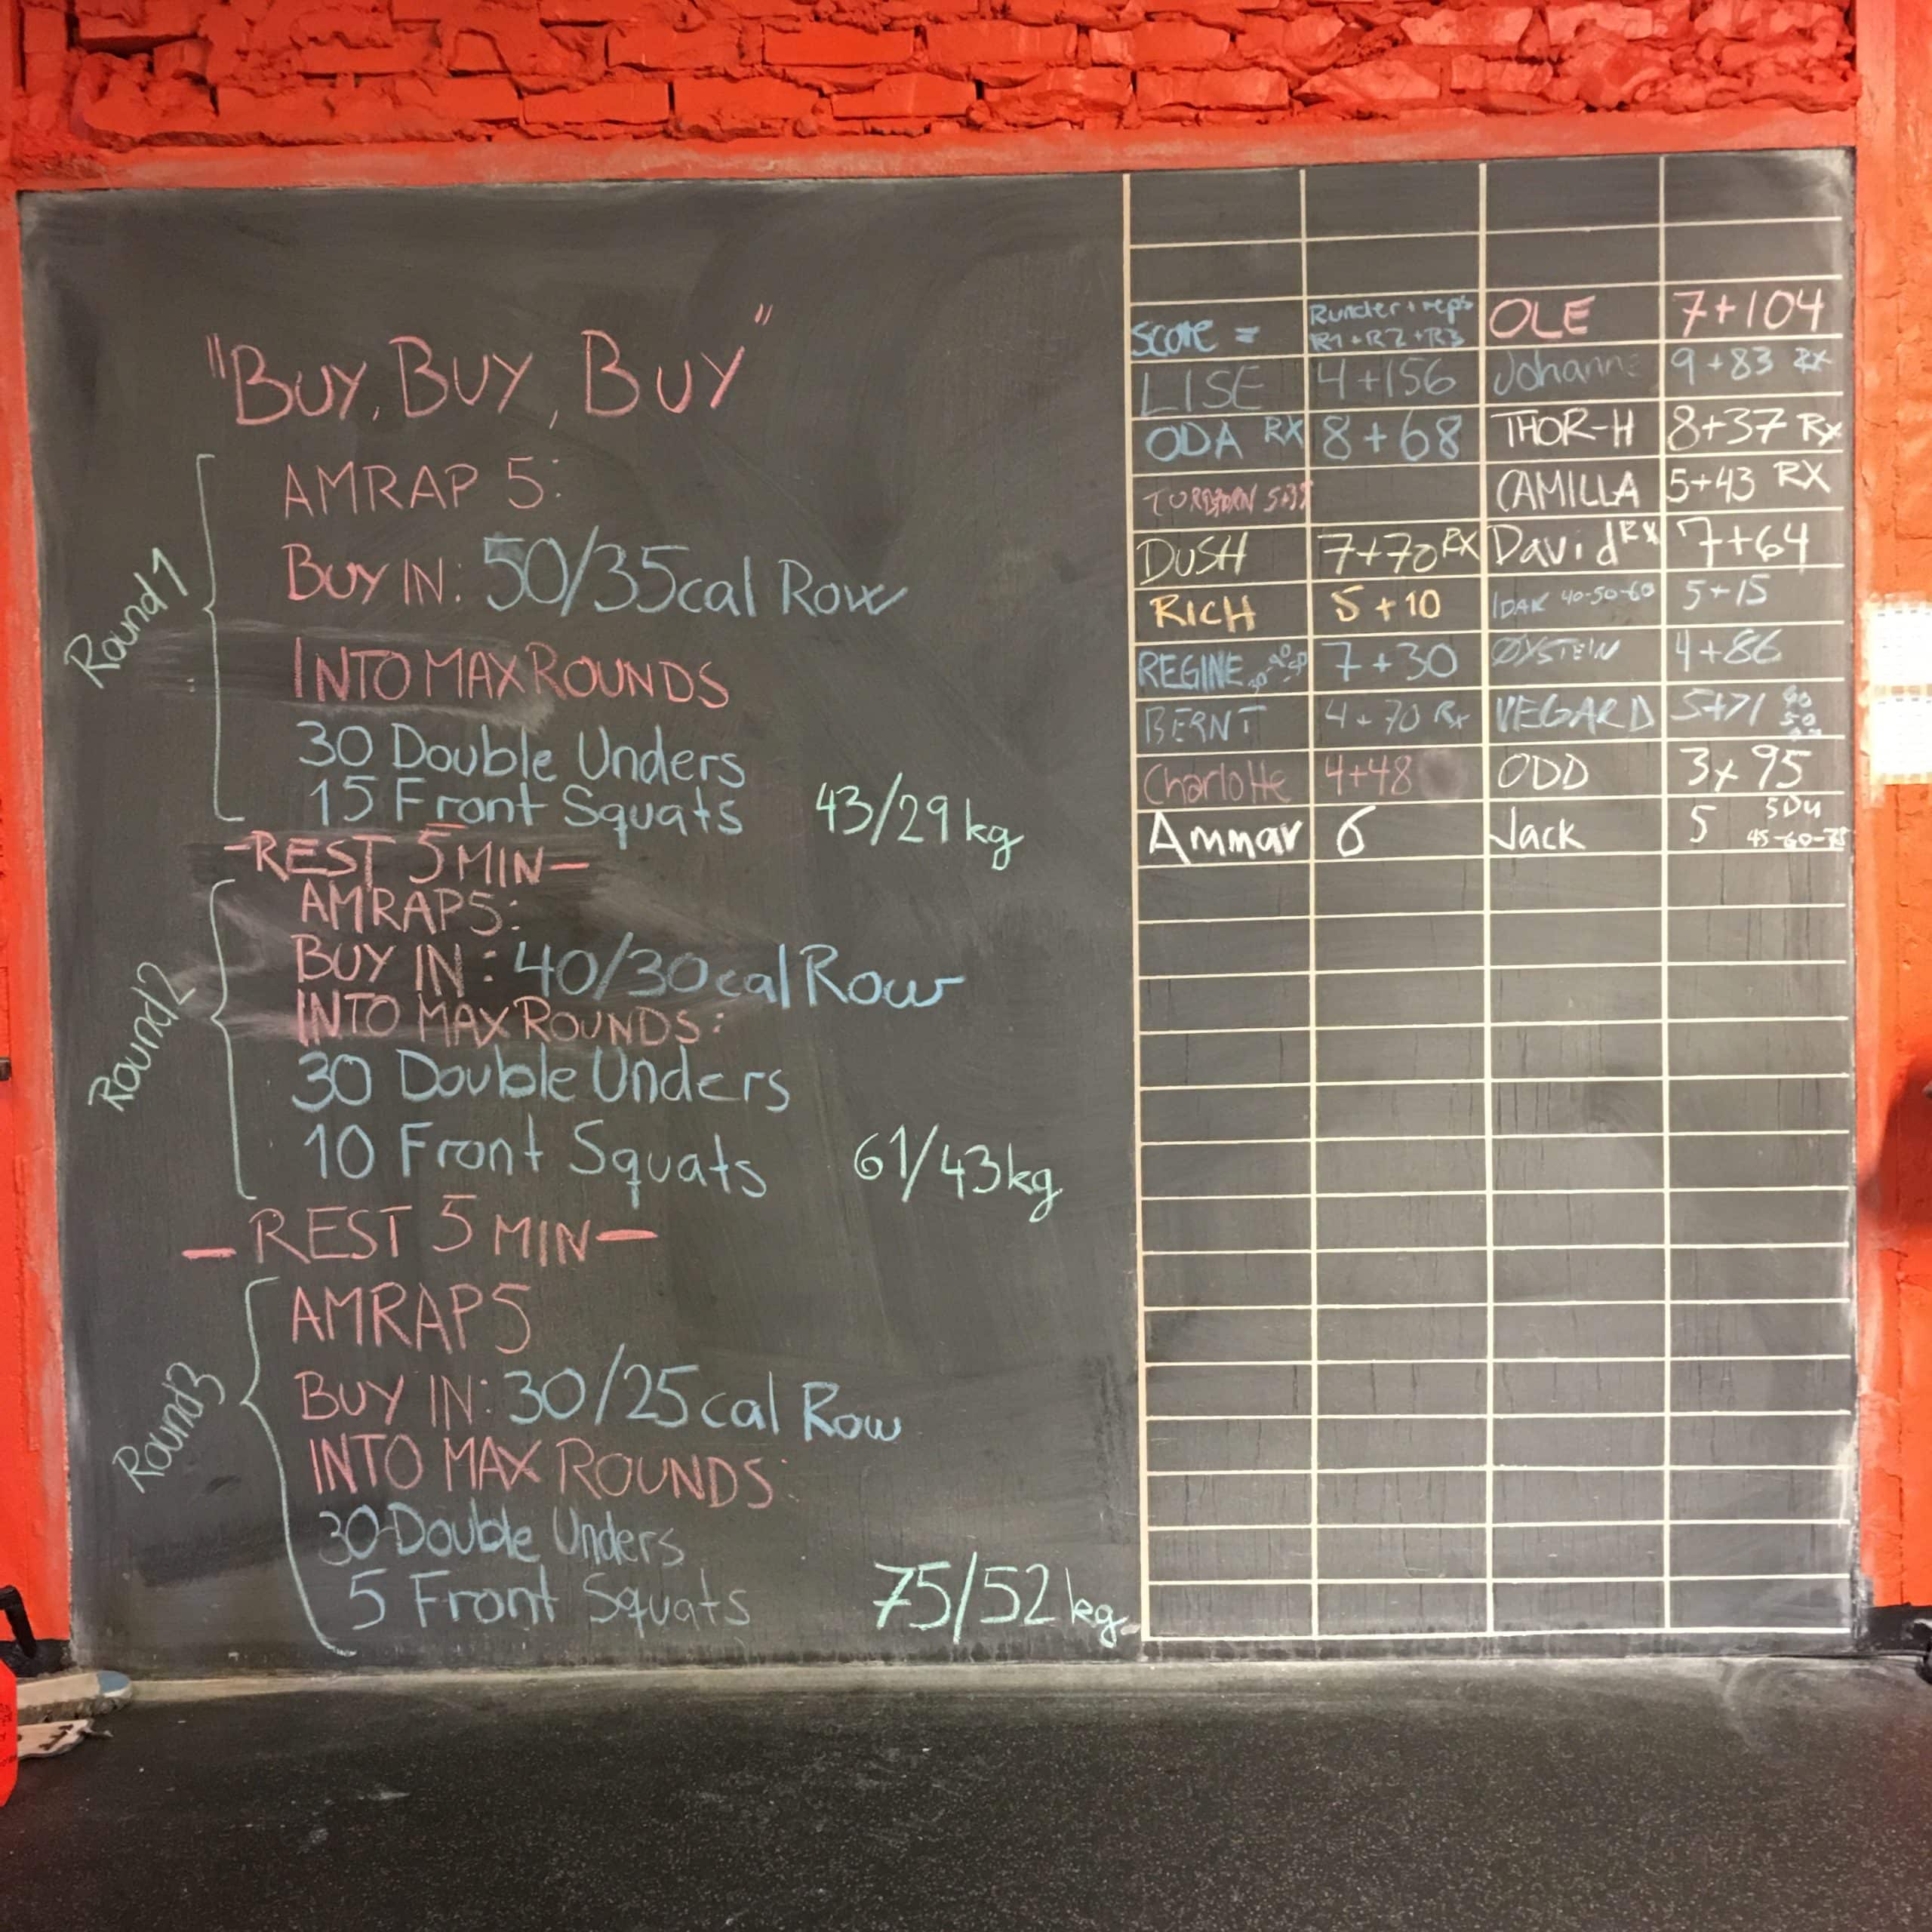 "Buy, Buy, Buy"
Round 1
AMRAP 5:
BUY IN: 50/35cal Row
INTO MAX ROUNDS
30 Double Unders
15 Front Squats 43/29 kg
-REST 5 MIN-
Round 2
AMRAP 5:
BUY IN: 40/30cal Row
INTO MAX ROUNDS:
30 Double Unders
10 Front Squats 61/43 kg
- REST 5 MIN -
Round 3
AMRAP 5
BUY IN: 30/25 cal Row
INTO MAX ROUNDS:
30 Double Unders
5 Front Squats 75/52 kg
score = Runder + reps R1 + R2 + R3 OLE 7+104
LISE 4+156 Johann 9+83 Rx
ODA RX 8+68 THOR-H 8+37 Rx
CAMILLA 5+43 RX
DUSH 7+70 RX David Rx 7+64
RICH 5+10 IDAK 40-50-60 5+15
REGINE 7+30 ØYSTEIN 4+86
BERNT 4+70 Rx VEGARD 5+71
Charlotte 4+48 ODD 3x95
Ammar 6 Jack 5 5DU 45-60-75